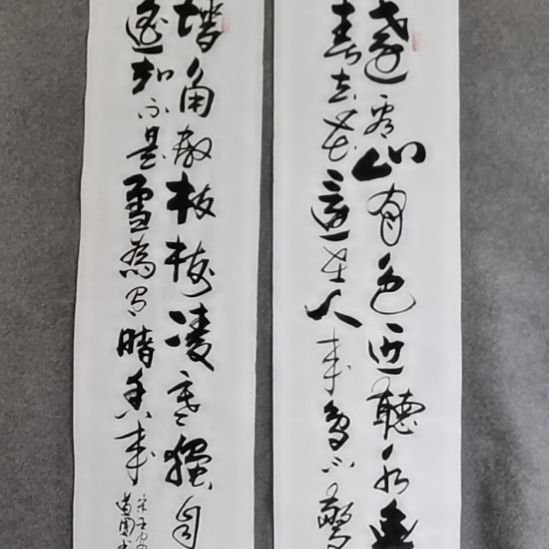 遠看山有色近聽水無
春去花還在人来鳥不驚
墙角數枝梅凌寒獨自
遥知不是雪為有暗香来